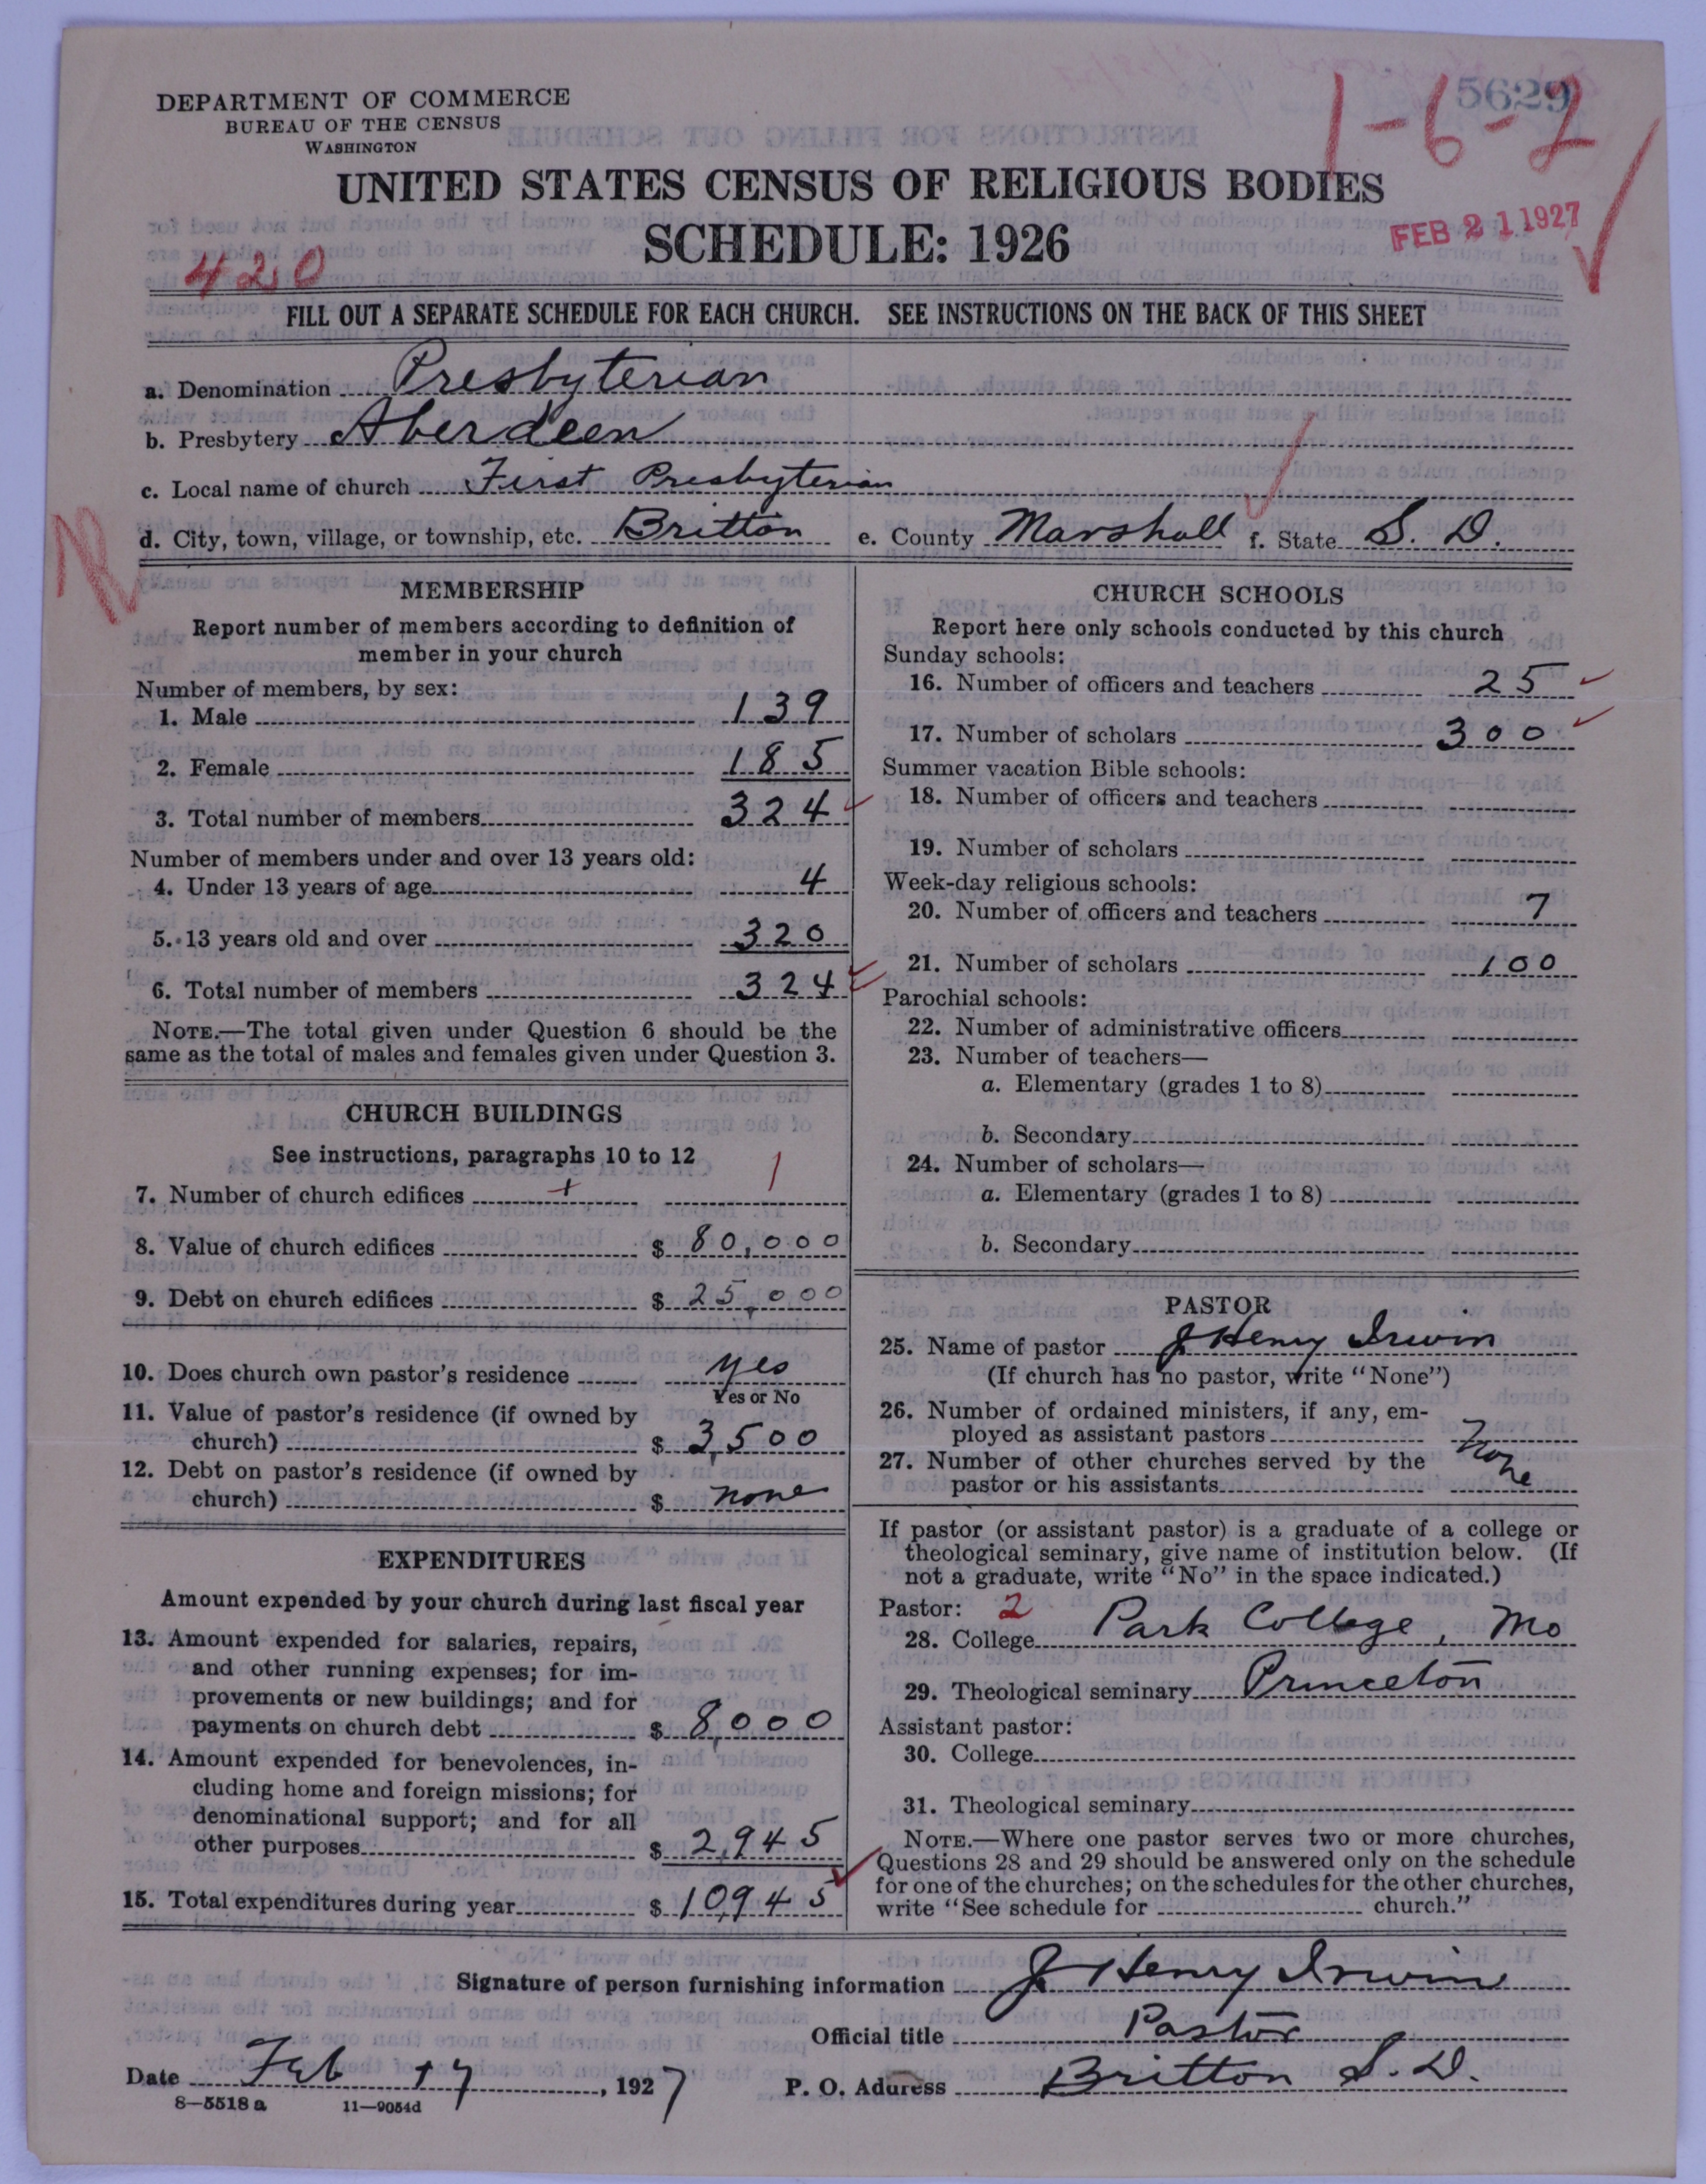 5629
1-6-2
DEPARTMENT OF COMMERCE
BUREAU OF THE CENSUS
WASHINGTON
UNITED STATES CENSUS OF RELIGIOUS BODIES
SCHEDULE: 1926
FEB 21 1927
420
FILL OUT A SEPARATE SCHEDULE FOR EACH CHURCH. SEE INSTRUCTIONS ON THE BACK OF THIS SHEET
a. Denomination Presbyterian
b. Presbytery Aberdeen
c. Local name of church First Presbyterian
d. City, town, village, or township, etc. Britton e. County Marshall f. State S. D.
MEMBERSHIP
Report number of members according to definition of
member in your church
Number of members, by sex:
1. Male 139
2. Female 185
3. Total number of members 324
Number of members under and over 13 years old:
4. Under 13 years of age 4
5. 13 years old and over 320
6. Total number of members 324
NOTE.—The total given under Question 6 should be the
same as the total of males and females given under Question 3.
CHURCH BUILDINGS
See instructions, paragraphs 10 to 12
7. Number of church edifices 1
8. Value of church edifices $ 80,000
9. Debt on church edifices $ 25,000
10. Does church own pastor's residence yes
Yes or No
11. Value of pastor's residence (if owned by
church) $ 3,500
12. Debt on pastor's residence (if owned by
church) $ none
EXPENDITURES
Amount expended by your church during last fiscal year
13. Amount expended for salaries, repairs,
and other running expenses; for im-
provements or new buildings; and for
payments on church debt $ 8,000
14. Amount expended for benevolences, in-
cluding home and foreign missions; for
denominational support; and for all
other purposes $ 2,945
15. Total expenditures during year $ 10,945
CHURCH SCHOOLS
Report here only schools conducted by this church
Sunday schools:
16. Number of officers and teachers 25
17. Number of scholars 300
Summer vacation Bible schools:
18. Number of officers and teachers
19. Number of scholars
Week-day religious schools:
20. Number of officers and teachers 7
21. Number of scholars 100
Parochial schools:
22. Number of administrative officers
23. Number of teachers—
a. Elementary (grades 1 to 8)
b. Secondary
24. Number of scholars—
a. Elementary (grades 1 to 8)
b. Secondary
PASTOR
25. Name of pastor J Henry Irwin
(If church has no pastor, write "None")
26. Number of ordained ministers, if any, em-
ployed as assistant pastors None
27. Number of other churches served by the
pastor or his assistants
If pastor (or assistant pastor) is a graduate of a college or
theological seminary, give name of institution below. (If
not a graduate, write "No" in the space indicated.)
Pastor: 2
28. College Park College, Mo
29. Theological seminary Princeton
Assistant pastor:
30. College
31. Theological seminary
NOTE.—Where one pastor serves two or more churches,
Questions 28 and 29 should be answered only on the schedule
for one of the churches; on the schedules for the other churches,
write "See schedule for church."
Signature of person furnishing information J Henry Irwin
Official title Pastor
Date Feb 17, 1927 P. O. Address Britton S. D.
8—5518 a 11—9054d